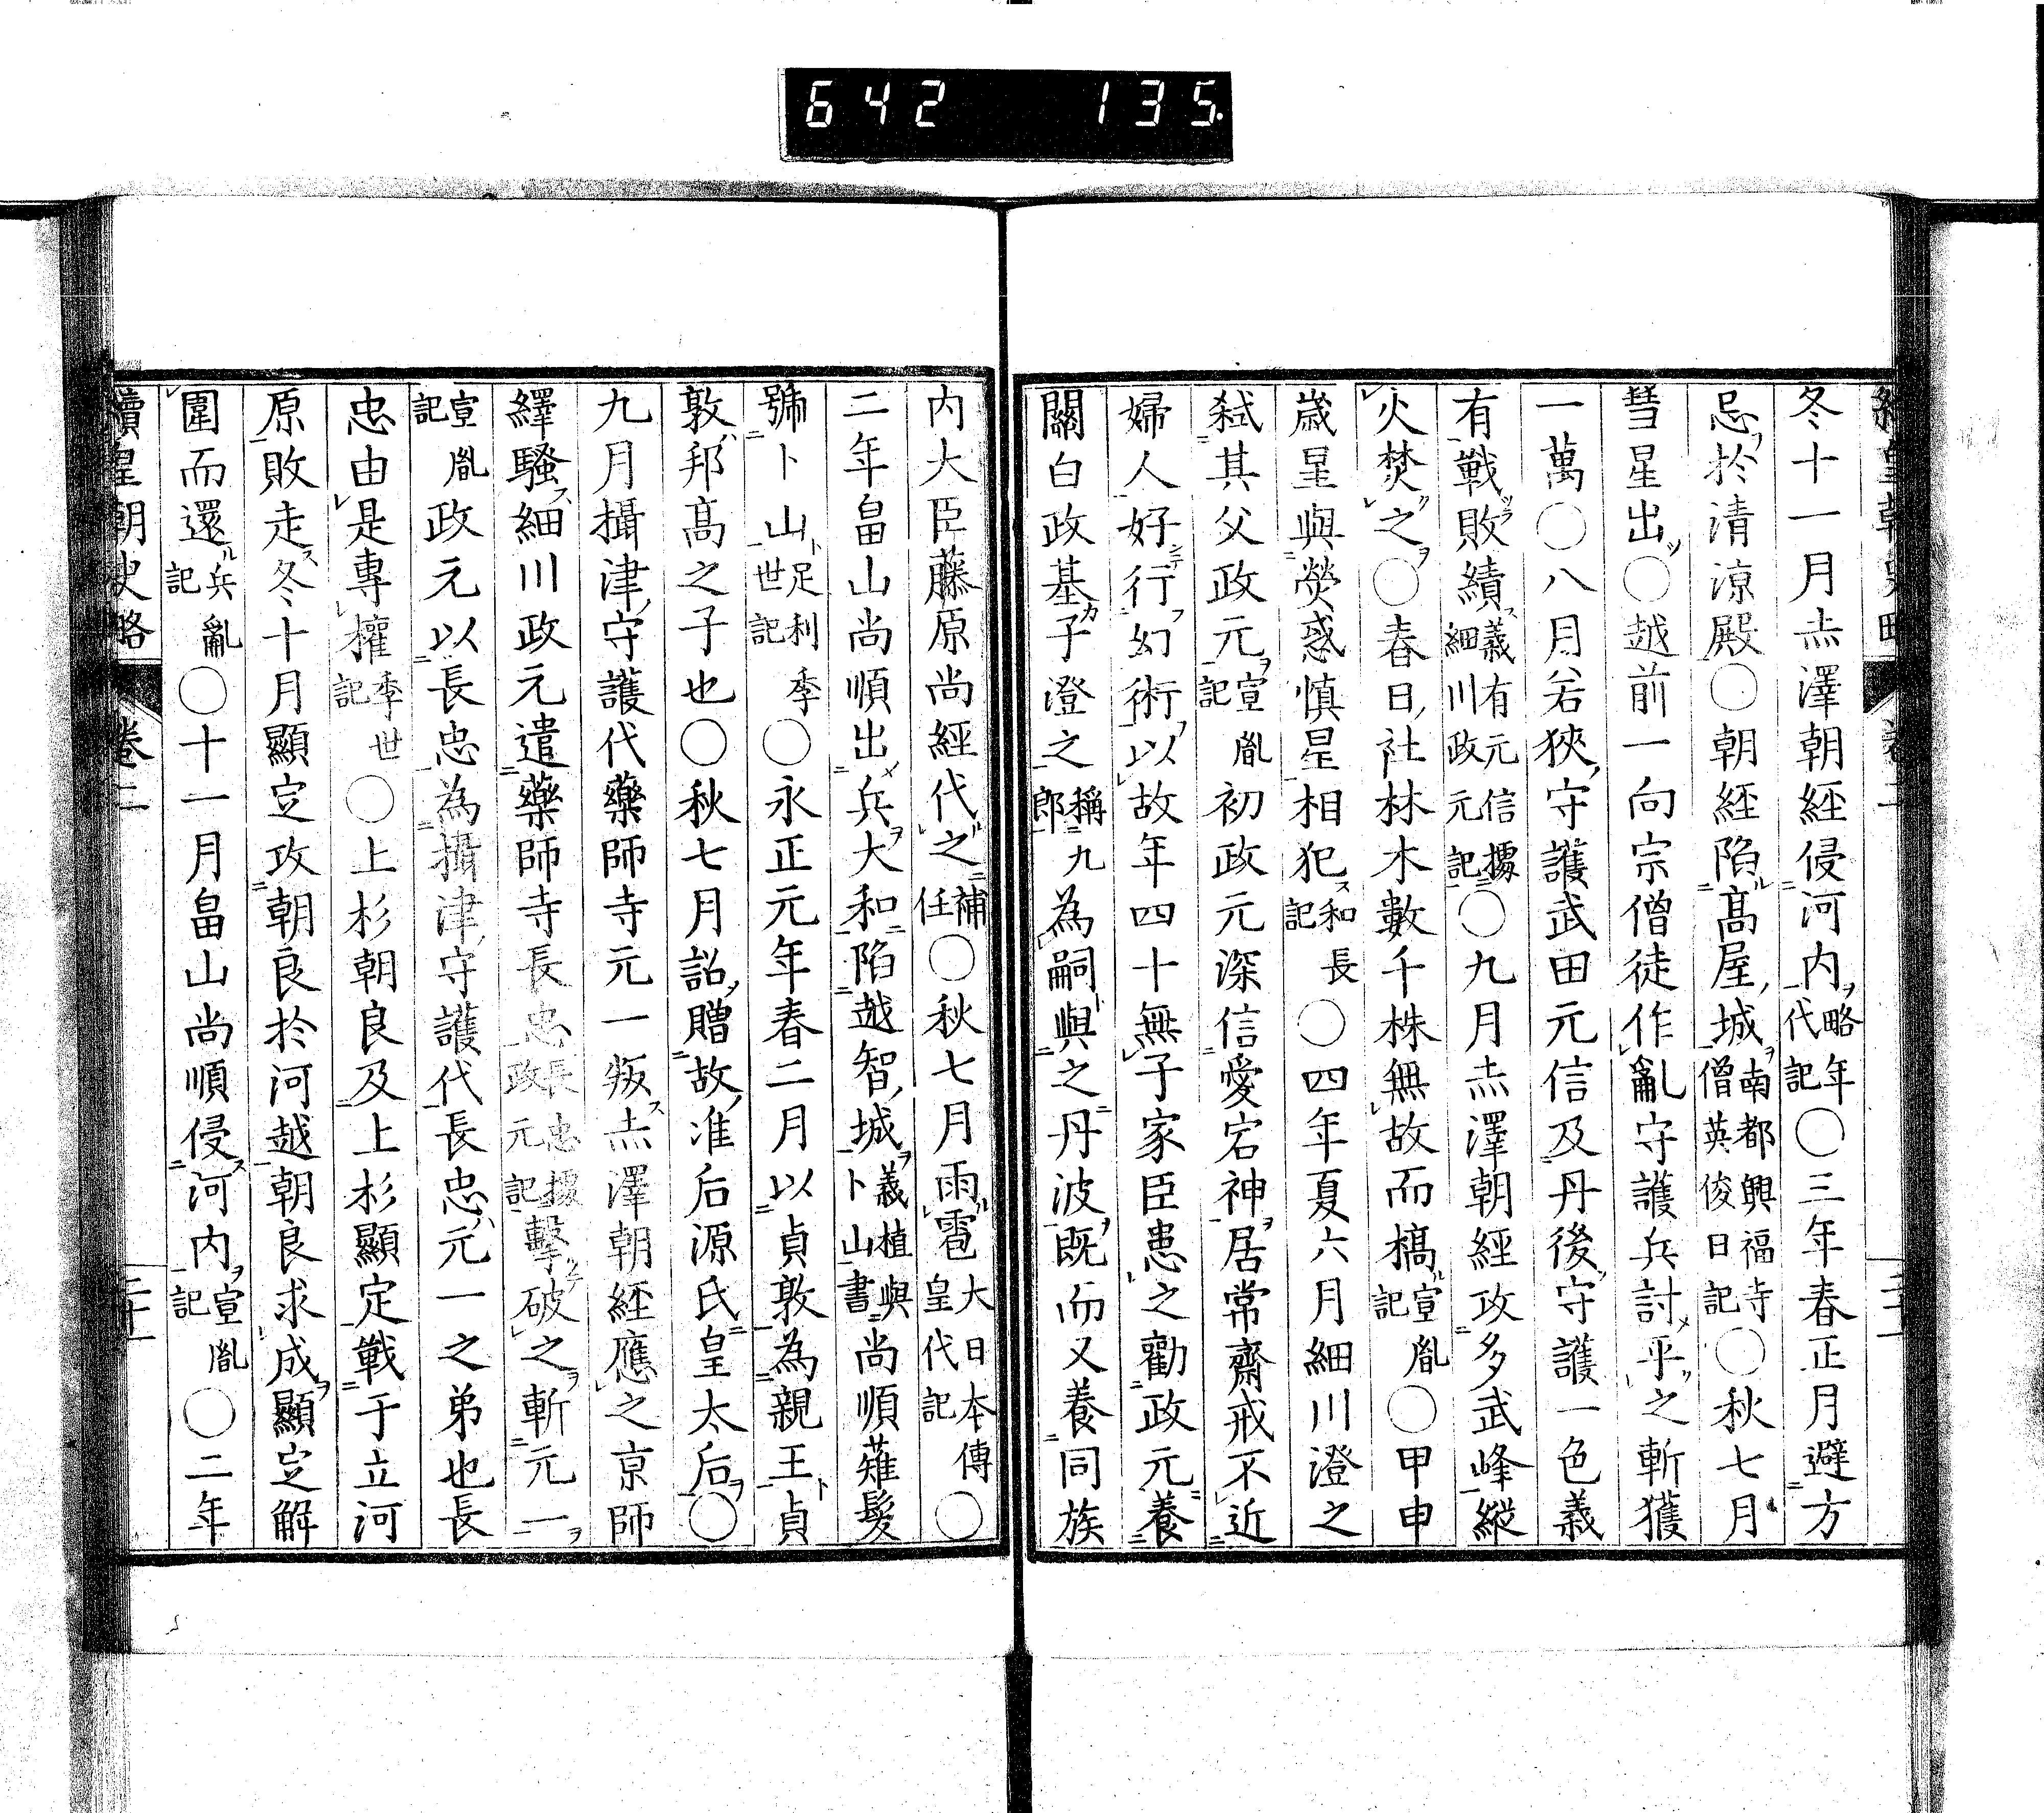 642 135.
冬十一月赤澤朝經侵河内略年代記○三年春正月避方
忌於清涼殿○朝經陷髙屋城南都興福寺僧英俊日記○秋七月
彗星出○越前一向宗僧徒作亂守護兵討平之斬獲
一萬○八月若狹守護武田元信及丹後守護一色義
有戰敗績義有元信據細川政元記○九月赤澤朝經攻多武峰縱
火焚之○春日社林木數千株無故而槁宣胤記○甲申
歳星與熒惑慎星相犯和長記○四年夏六月細川澄之
弑其父政元宣胤記初政元深信愛宕神居常齋戒不近
婦人好行幻術以故年四十無子家臣患之勸政元養
關白政基子澄之稱九郎為嗣與之丹波既而又養同族
内大臣藤原尚經代之補任○秋七月雨雹大日本傳皇代記○
二年畠山尚順出兵大和陷越智城義植與卜山書尚順薙髮
號卜山足利季世記○永正元年春二月以貞敦為親王貞
敦邦髙之子也○秋七月詔贈故准后源氏皇太后○
九月攝津守護代藥師寺元一叛赤澤朝經應之京師
繹騷細川政元遣藥師寺長忠長忠據政元記擊破之斬元一
宣胤記政元以長忠為攝津守護代長忠元一之弟也長
忠由是專權季世記○上杉朝良及上杉顯定戰于立河
原敗走冬十月顯定攻朝良於河越朝良求成顯定解
圍而還兵亂記○十一月畠山尚順侵河内宣胤記○二年
續皇朝史略 卷二 二十一